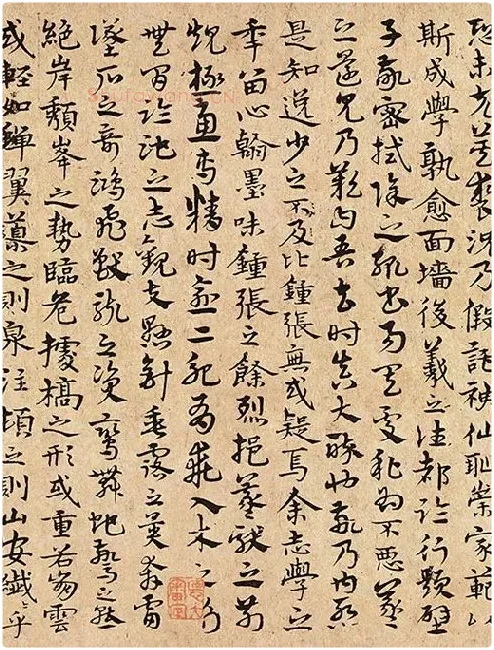 恐未克箕裘況乃假託神仙恥崇家範以
斯成學孰愈面墻後羲之往都臨行題壁
子敬密拭除之輒書易其處私為不惡羲
之還見乃歎曰吾去時真大醉也敬乃內慚
是知逸少之不及比鍾張無或疑焉余志學之
年留心翰墨味鍾張之餘烈挹羲獻之前
規極慮專精時逾二紀有乖入木之術
無間臨池之志觀夫懸針垂露之異奔雷
墜石之奇鴻飛獸駭之資鸞舞蛇驚之態
絕岸頹峯之勢臨危據槁之形或重若崩雲
或輕如蟬翼導之則泉注頓之則山安纖纖乎